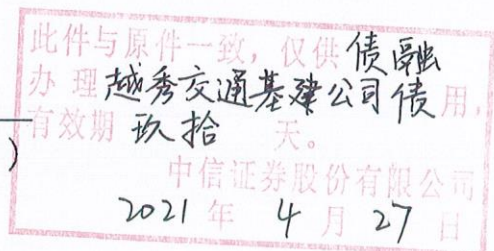 此件与原件一致，仅供债融
办理越秀交通基建公司债用，
有效期玖拾天。
)
中信证券股份有限公司
2021年4月27日